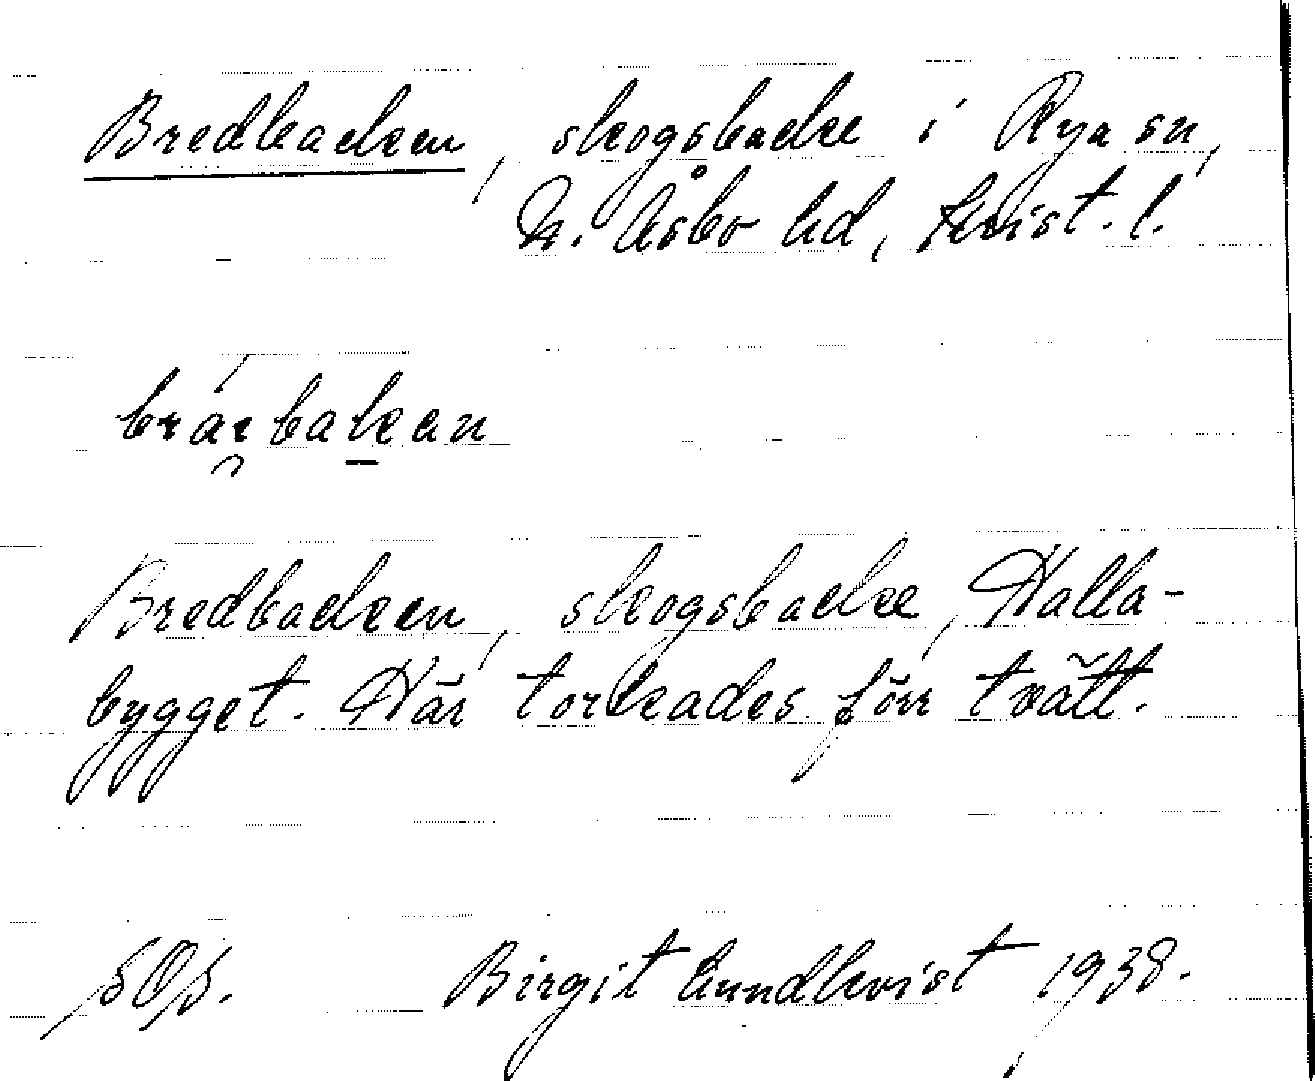 Bredbacken, skogsbacke i Rya sn,
N. Åsbo hd, Krist. l.
bräe̯bak̲an
Bredbacken, skogsbacke, Halla-
bygget. Här torkades förr tvätt.
SOS. Birgit Lundkvist 1938.